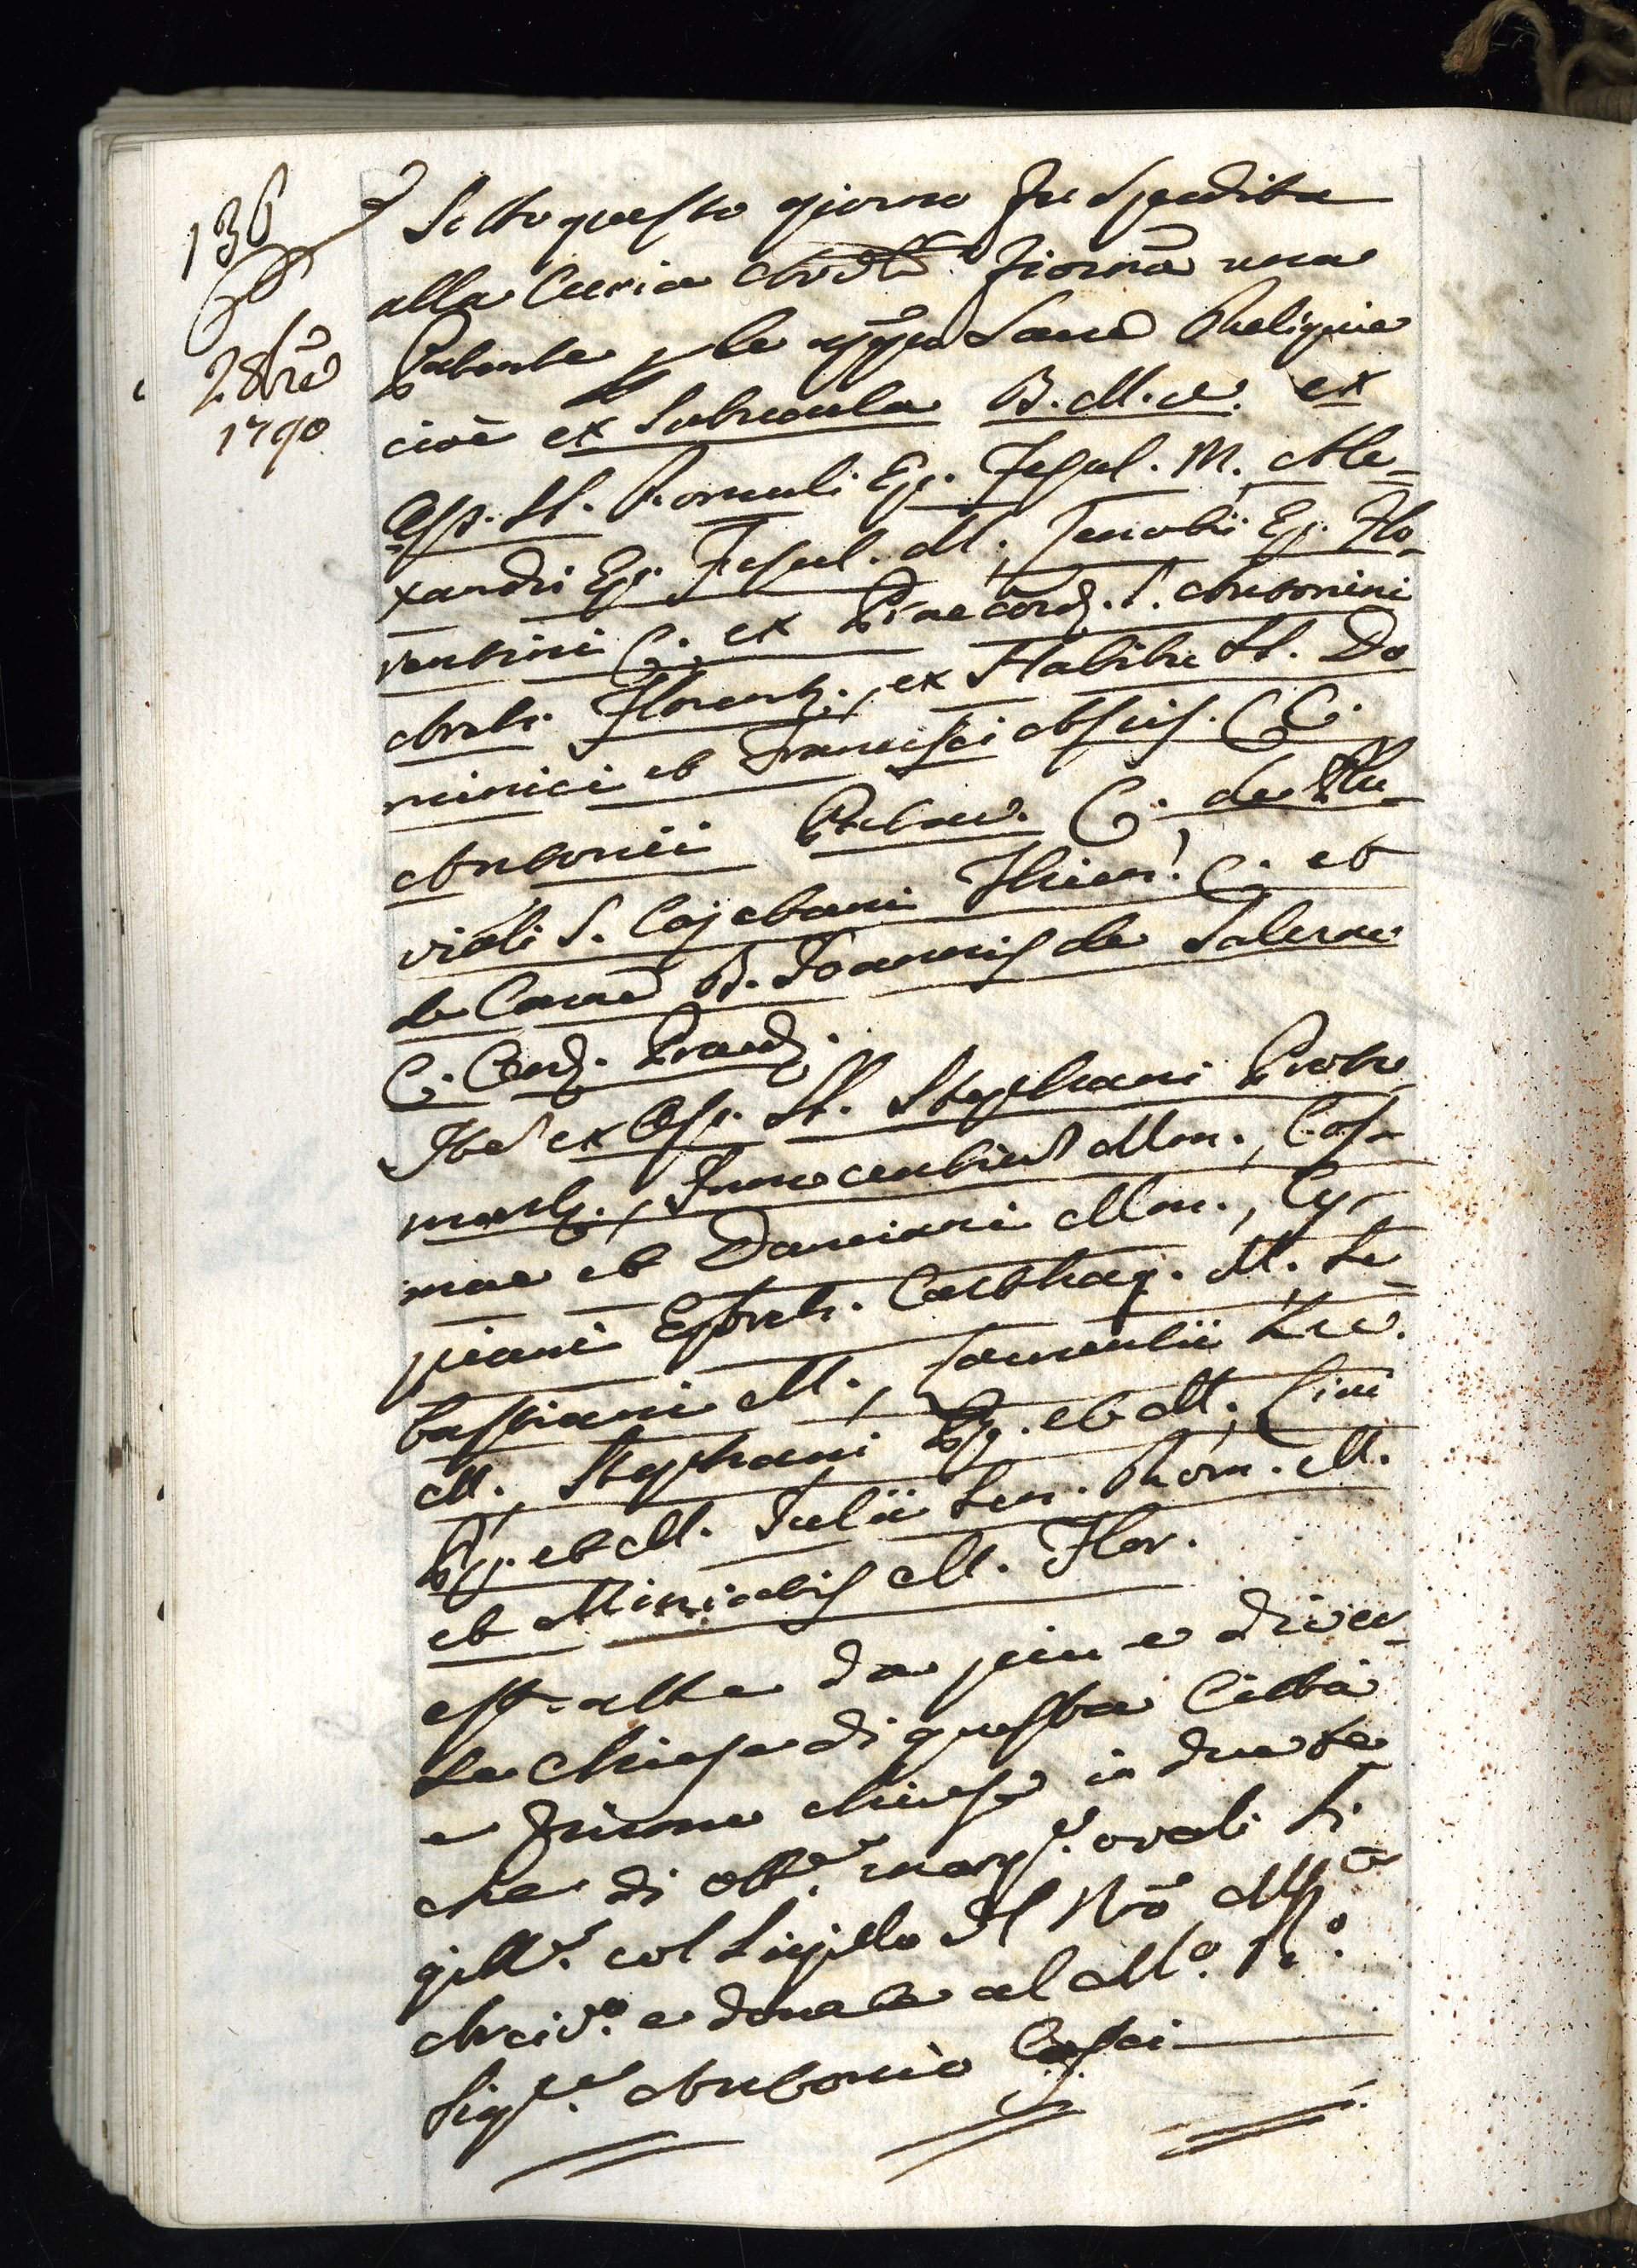 136
28bre
1790
Sotto questo giorno fu Spedita
alla Curia Arciv. Fiorna una
Patente p le appo Sacre Reliquie
cioè ex Subucula B. M. V. ex
Oss. SS. Romuli Ep. Fesul. M. Ale=
xandri Ep. Fesul. M., Zenobii Ep. Flo=
rentini C. ex Praecord. S. Antonini
Archi. Florent., ex Habitu SS. Do
minici et Francisci Assis. CC.
Antonii Patav. C. de Plu=
viali S. Cajetani Thien. C. et
de Carne B. Joannis de Salerno
C. Ord. Praed.
Ite ex Oss. SS. Stephani Proto
mart., Innocentium Mm., Cos=
mae et Damiani Mm., Cy=
priani Epi Carthag. M. Se=
bastiani M., Laurentii Lev.
M. Stephani Pp. et M., Lini
Pp. et M. Julii Sen. Rom. M.
et Miniatis M. Flor.
estratte da piu e diver=
se Chiese di questa Città
e furono chiuse in due te=
che di ott.e marg.e ovali Si
gill.e col Sigillo del Nro M.
Arciv.o e donate al M.o R.o
Sig.re Antonio